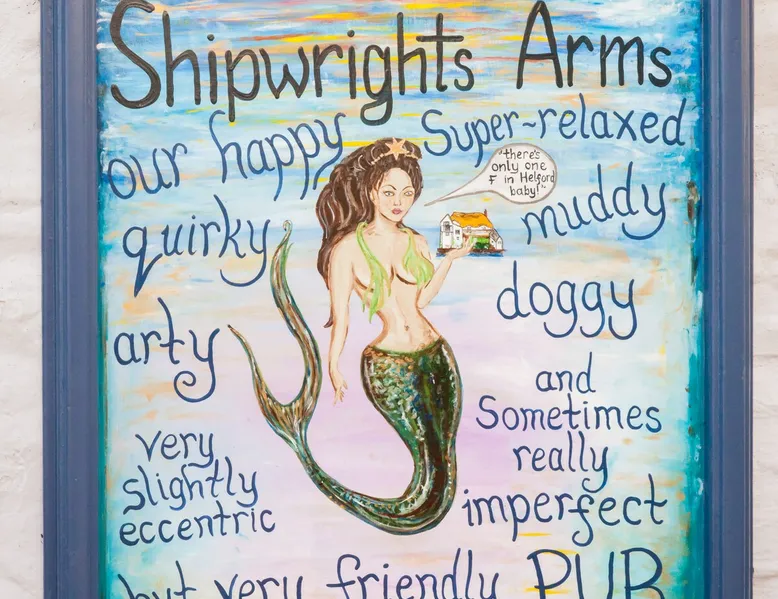 Shipwrights Arms
our happy Super-relaxed
"there's
only one
F in Helford
baby!"
quirky muddy
arty doggy
very
slightly
eccentric
and
Sometimes
really
imperfect
but very friendly PUB